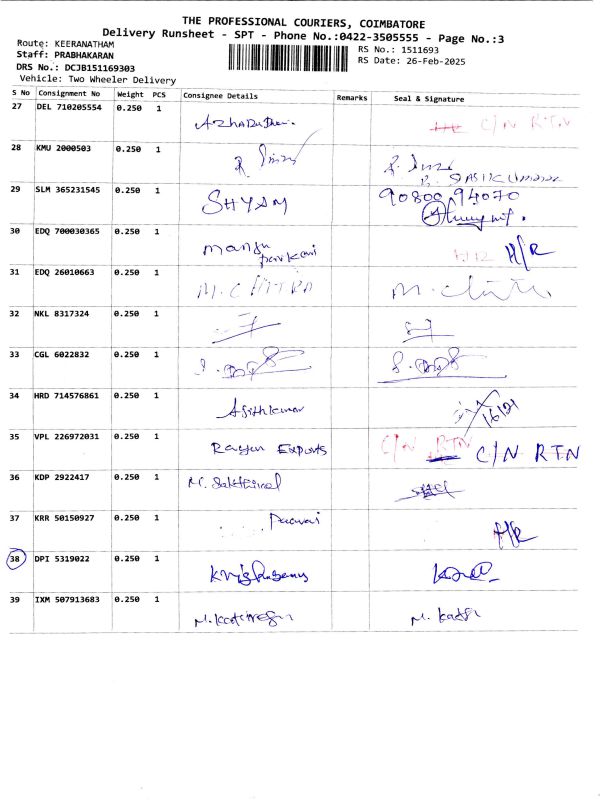 THE PROFESSIONAL COURIERS, COIMBATORE
Delivery Runsheet - SPT - Phone No.:0422-3505555 - Page No.:3
Route: KEERANATHAM
Staff: PRABHAKARAN
DRS No.: DCJB151169303
Vehicle: Two Wheeler Delivery
RS No.: 1511693
RS Date: 26-Feb-2025
S No Consignment No Weight PCS Consignee Details Remarks Seal & Signature
27 DEL 710205554 0.250 1 C/N RTN
28 KMU 2000503 0.250 1 R. SASIKUMAR
29 SLM 365231545 0.250 1 SHYAM 90800 94070
30 EDQ 700030365 0.250 1 H/R
31 EDQ 26010663 0.250 1 M. CHITRA
32 NKL 8317324 0.250 1
33 CGL 6022832 0.250 1
34 HRD 714576861 0.250 1 Ajithkumar
35 VPL 226972031 0.250 1 Exports C/N RTN C/N RTN
36 KDP 2922417 0.250 1
37 KRR 50150927 0.250 1 H/R
38 DPI 5319022 0.250 1
39 IXM 507913683 0.250 1